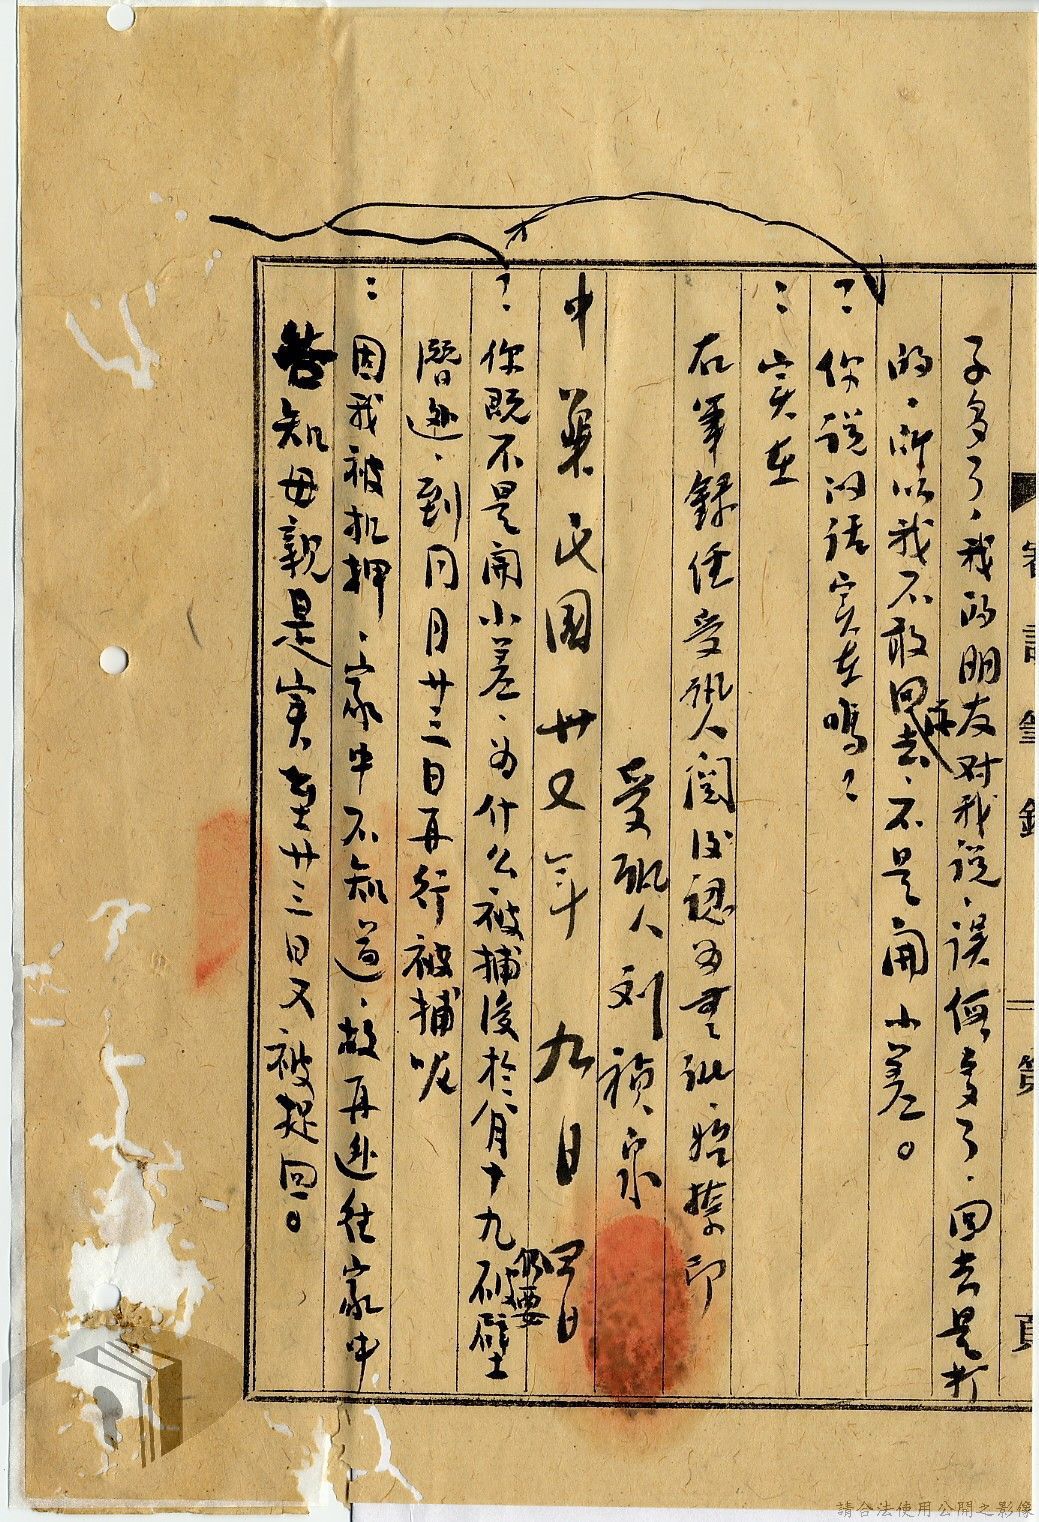 審訊筆錄 第 頁
子多了，我的朋友对我説，误假多了，回去是打
的，所以我不敢再回去，不是開小差。
：你説的话实在嗎？
：实在
右筆録任受訊人閲後認为無訛，始捺印
受訊人刘禎泉
中華民国卅又年九月四日
：你既不是開小差，为什么被捕後於八月十九破壁
潜逃，到同月廿三日再行被捕呢
：因我被扣押，家中不知道，故再逃往家中
告知母親是实至廿三日又被捉回。
請合法使用公開之影像